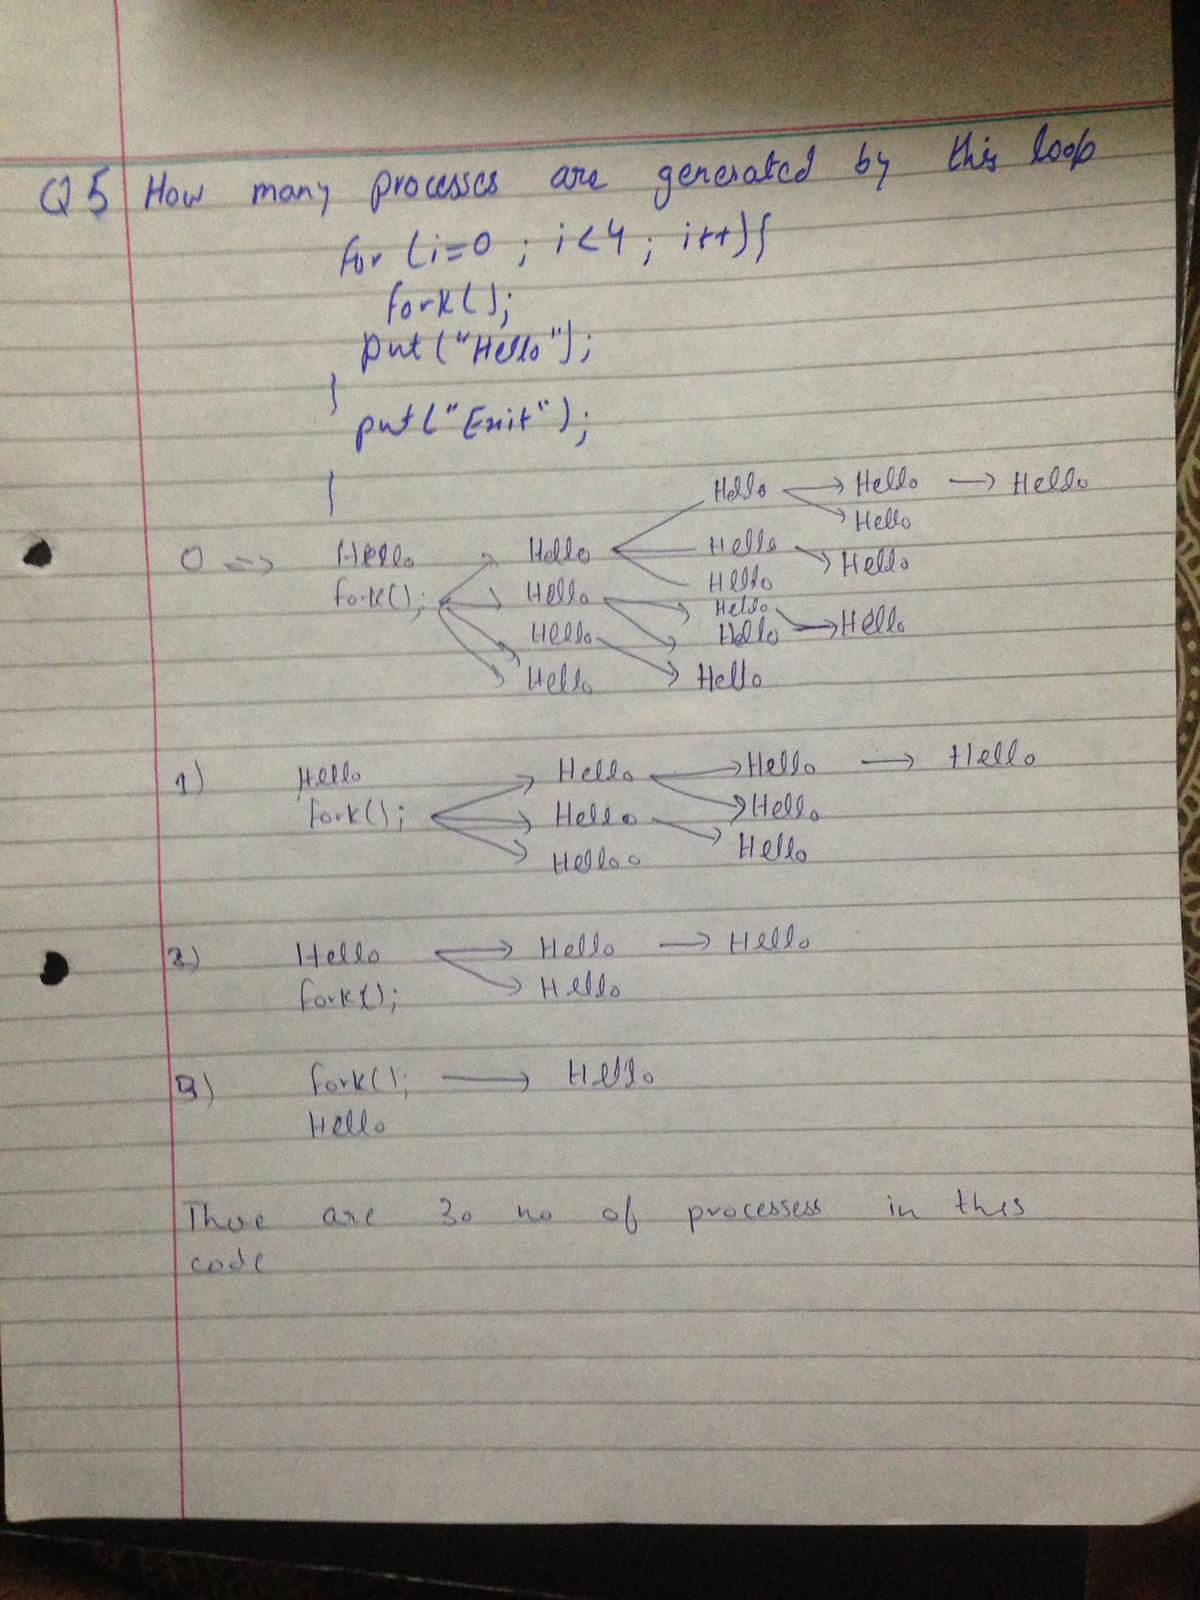 Q5 How many processes are generated by this loop
for (i=0 ; i<4 ; i++){
fork();
put("Hello");
}
put("Exit");
}
Hello → Hello → Hello
Hello
0 => Hello → Hello Hello → Hello
fork(); → Hello Hello
Hello
Hello Hello → Hello
Hello Hello
1) Hello → Hello → Hello → Hello
fork(); → Hello → Hello
→ Hello Hello
2) Hello → Hello → Hello
fork(); → Hello
3) fork(); → Hello
Hello
There are 30 no of processess in this
code